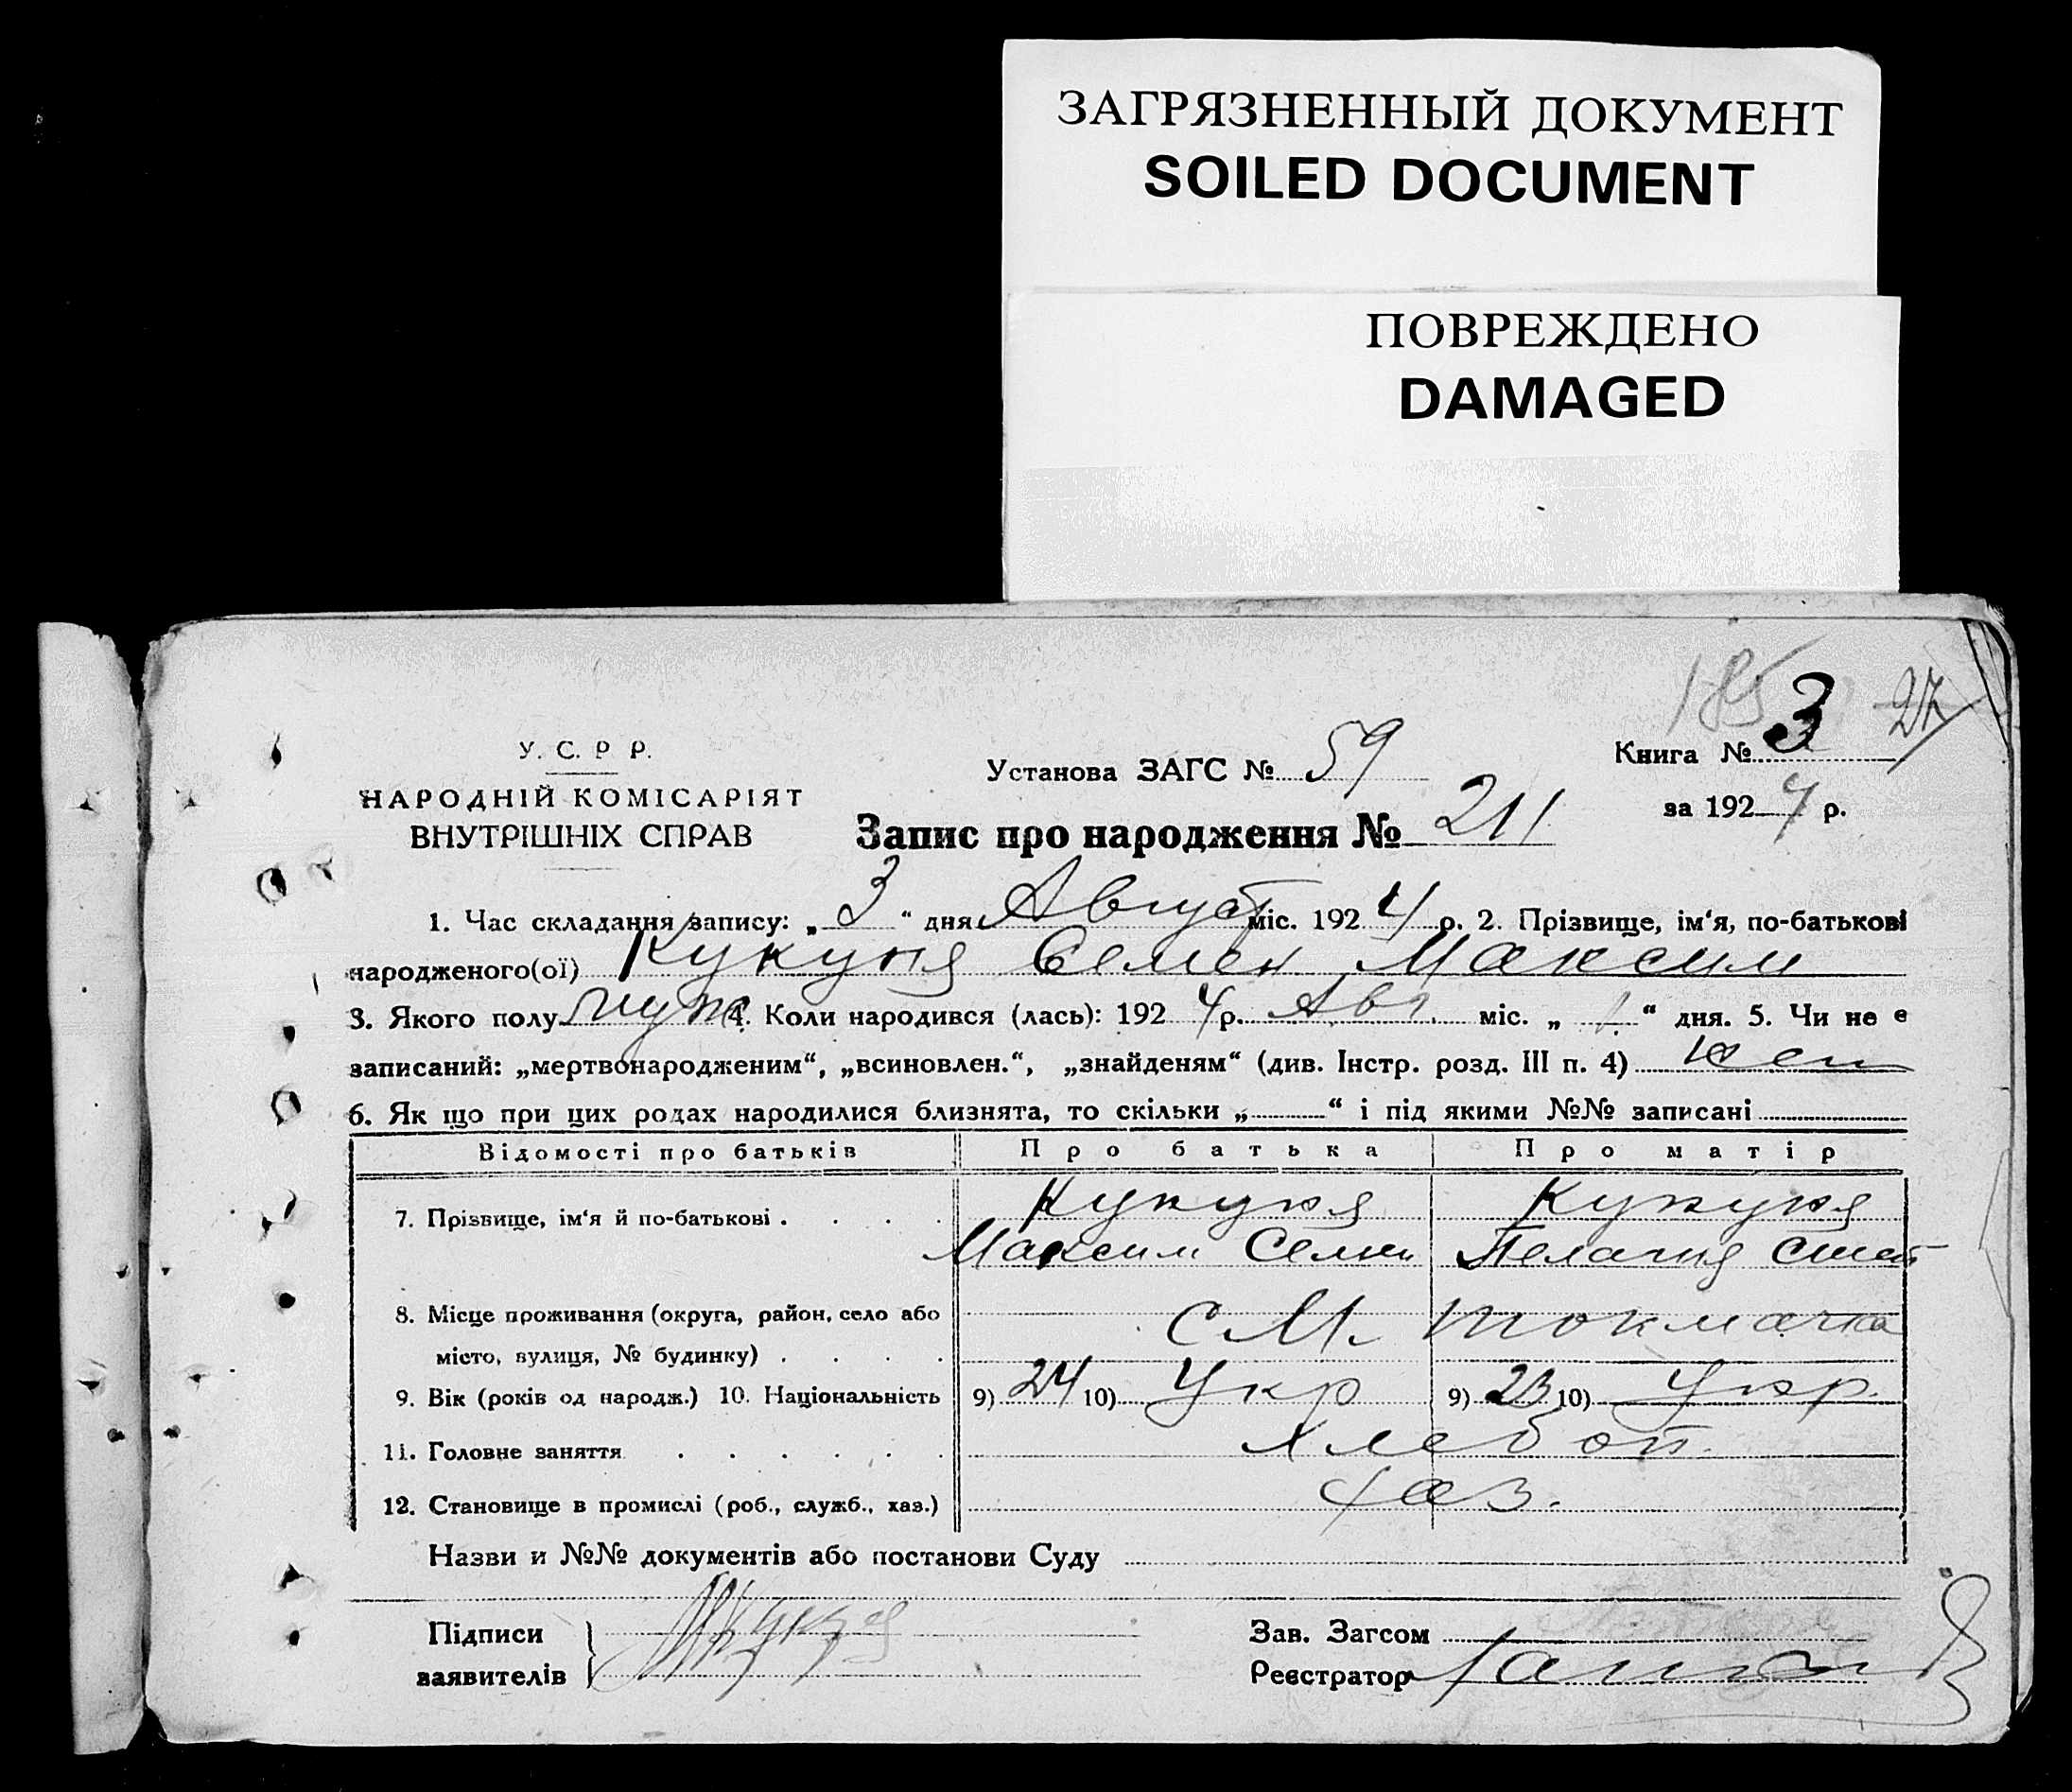 ЗАГРЯЗНЕННЫЙ ДОКУМЕНТ
SOILED DOCUMENT
ПОВРЕЖДЕНО
DAMAGED
185 3 27
У. С. Р Р.
НАРОДНІЙ КОМІСАРІЯТ
ВНУТРІШНІХ СПРАВ
Установа ЗАГС № 59
Книга №
за 1924 р.
Запис про народження № 211
1. Час складання запису: „ 3 “ дня Август міс. 1924 р. 2. Прізвище, ім‘я, по-батькові
народженого(ої) Кукуня Семен Максим
3. Якого полу муж 4. Коли народився (лась): 1924 р. Авг. міс. „ 1 “ дня. 5. Чи не є
записаний: „мертвонародженим“, „всиновлен.“, „знайденям“ (див. Інстр. розд. III п. 4)
6. Як що при цих родах народилися близнята, то скільки „ “ і під якими №№ записані
Відомості про батьків Про батька Про матір
7. Прізвище, ім‘я й по-батькові . . . . Кукуня Кукуня
Максим Семен Пелагия
8. Місце проживання (округа, район, село або С М. Токмачка
місто, вулиця, № будинку) . . . .
9. Вік (років од народж.) 10. Національність 9) 24 10) Укр 9) 23 10) Укр.
11. Головне заняття . . . . . . Хлебоп.
12. Становище в промислі (роб., служб., хаз.) хаз.
Назви и №№ документів або постанови Суду
Підписи
заявителів
Зав. Загсом
Реєстратор